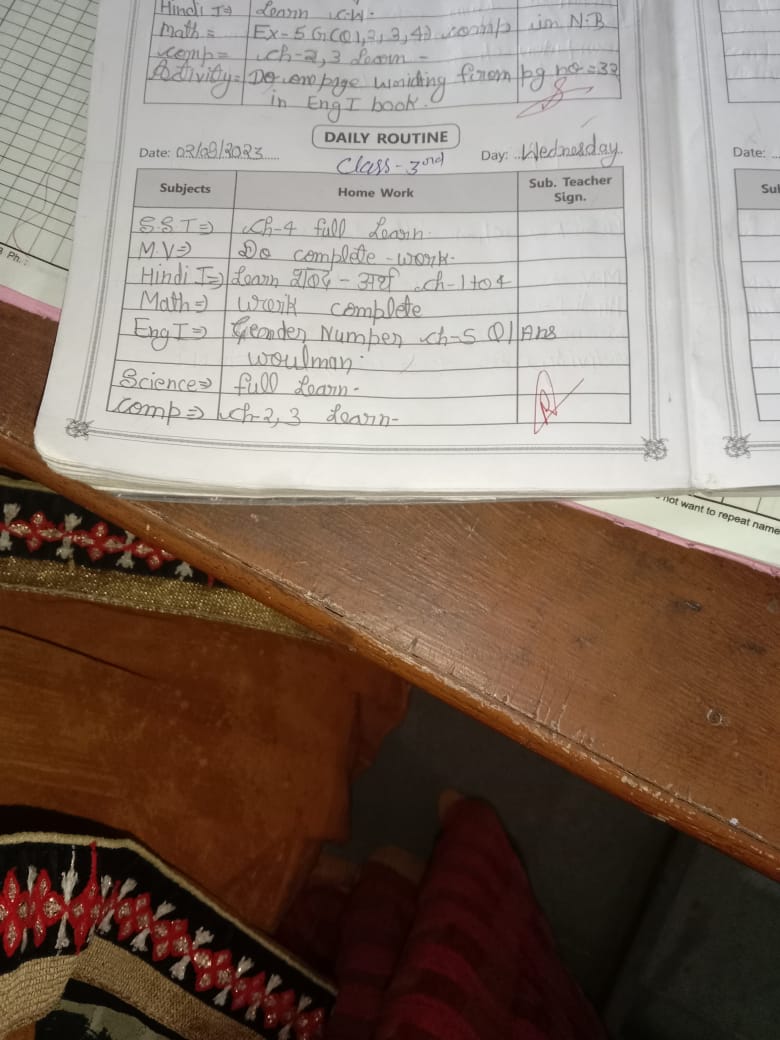 Hindi I⇒ Learn C.W.
Math = Ex-5 G(Q1,2,3,4) comp in N.B
comp = ch-2,3 Learn -
Activity = Do one page writing from pg no = 32
in Eng I book.
DAILY ROUTINE
Date: 02/08/2023 Class - 3rd Day: Wednesday.
Subjects Home Work Sub. Teacher Sign.
S.S.T ⇒ Ch-4 full Learn.
M.V ⇒ Do complete work.
Hindi I ⇒ Learn शब्द - अर्थ ch-1 to 4
Math ⇒ Work complete
Eng I ⇒ Gender Number ch-5 Q/Ans
woulman.
Science ⇒ full Learn -
Comp ⇒ ch-2,3 Learn -
Date:
Ph.:
not want to repeat name